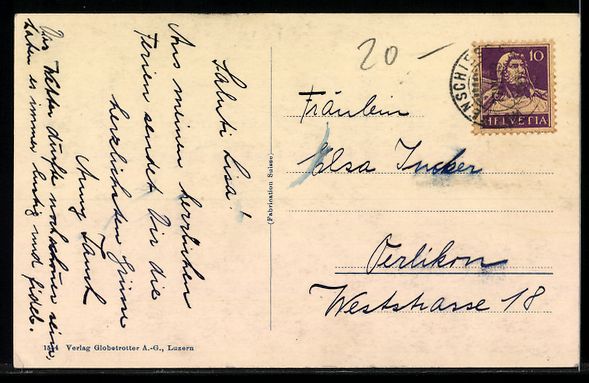 Saluti Lisa!
Aus meinen herrlichen
Ferien sendet Dir die
herzlichsten Grüsse
Anny
Das Wetter dürfte noch schöner sein,
haben es immer lustig und fidel.
1514 Verlag Globetrotter A.-G., Luzern
(Fabrication Suisse)
20-
10
HELVETIA
Fräulein
Elsa Jucker
Oerlikon
Weststrasse 18